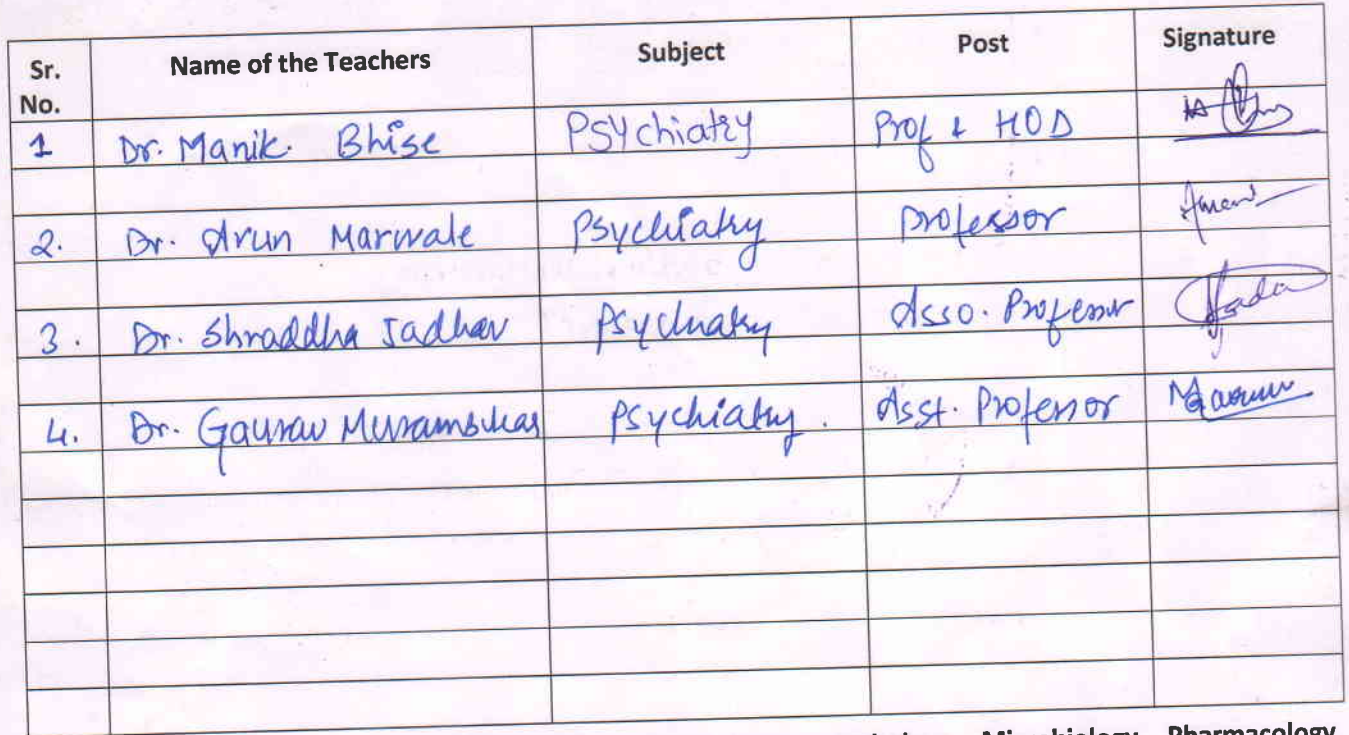 Sr. No. Name of the Teachers Subject Post Signature
1 Dr. Manik. Bhise Psychiatry Prof & HOD
2. Dr. Arun Marwale Psychiatry professor
3. Dr. Shraddha Jadhav Psychiatry Asso. Professor
4. Dr. Gaurav Psychiatry. Asst. Professor
Microbiology Pharmacology